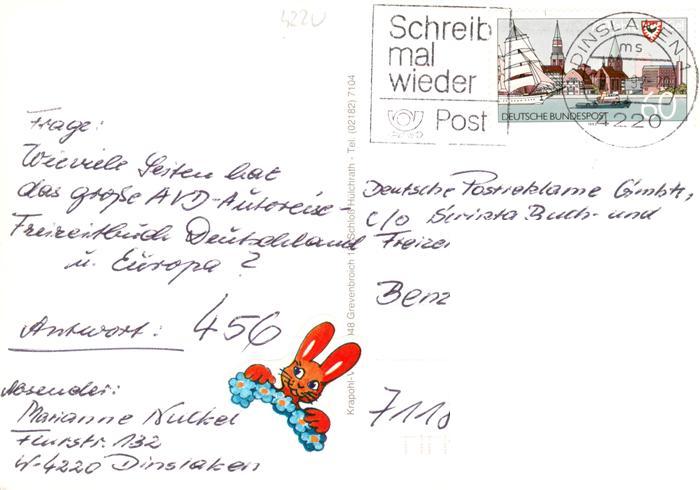 4220
Schreib
mal
wieder
Post
DINSLAKEN
ms
4220
DEUTSCHE BUNDESPOST
60
Frage:
Wieviele Seiten hat
das große AVD-Autoreise-
Freizeitbuch Deutschland
u. Europa?
Antwort: 456
Absender:
Marianne Kulkel
Flurstr. 132
W-4220 Dinslaken
Deutsche Postreklame GmbH,
c/o Scripta Buch- und
Freizei
Benz
7118
Krapohl-V 048 Grevenbroich 1 Schloß Hülchrath - Tel. (02182) 7104